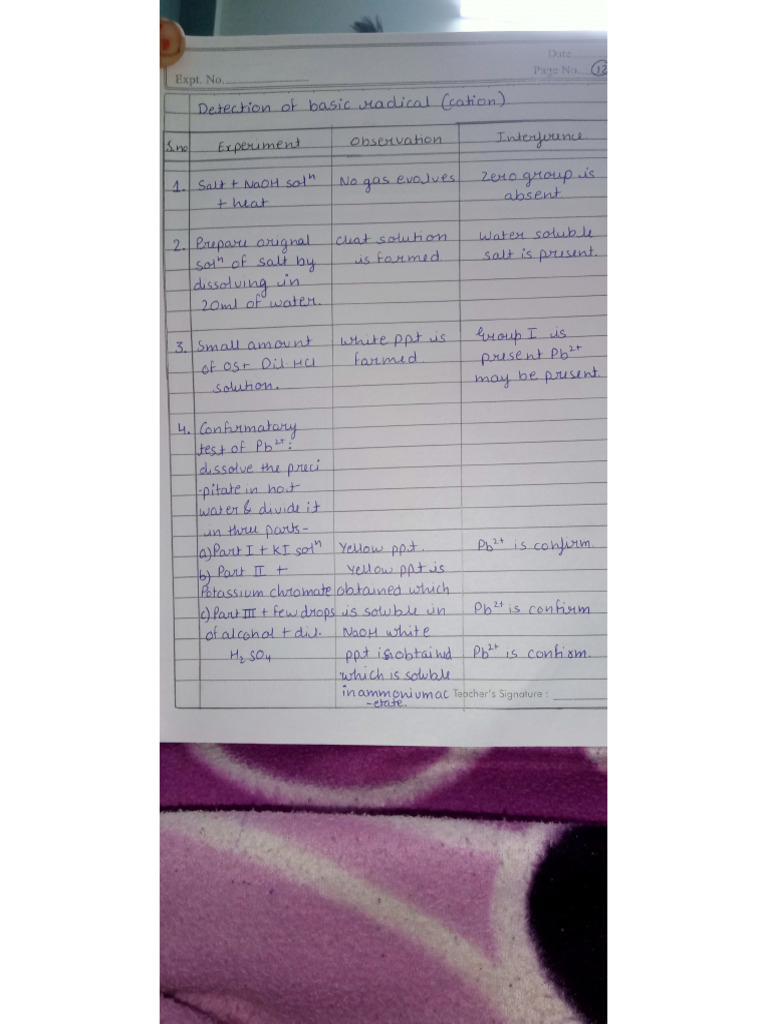 Date
Expt. No. Page No. 12
Detection of basic radical (cation)
S.no Experiment Observation Interference
1. Salt + NaOH solⁿ No gas evolves Zero group is
+ heat absent
2. Prepare orignal cleat solution Water soluble
solⁿ of salt by is formed salt is present.
dissolving in
20ml of water.
3. Small amount white ppt is Group I is
of OS+ Dil HCl formed present Pb²⁺
solution. may be present.
4. Confirmatory
test of Pb²⁺:
dissolve the preci
-pitate in hot
water & divide it
in three parts-
a) Part I + KI solⁿ Yellow ppt. Pb²⁺ is confirm
b) Part II + Yellow ppt is
Potassium chromate obtained which
c) Part III + few drops is soluble in Pb²⁺ is confirm
of alcohol + dil. NaOH white
H₂SO₄ ppt is obtained Pb²⁺ is confirm.
which is soluble
in ammoniumac Teacher's Signature :
-etate.